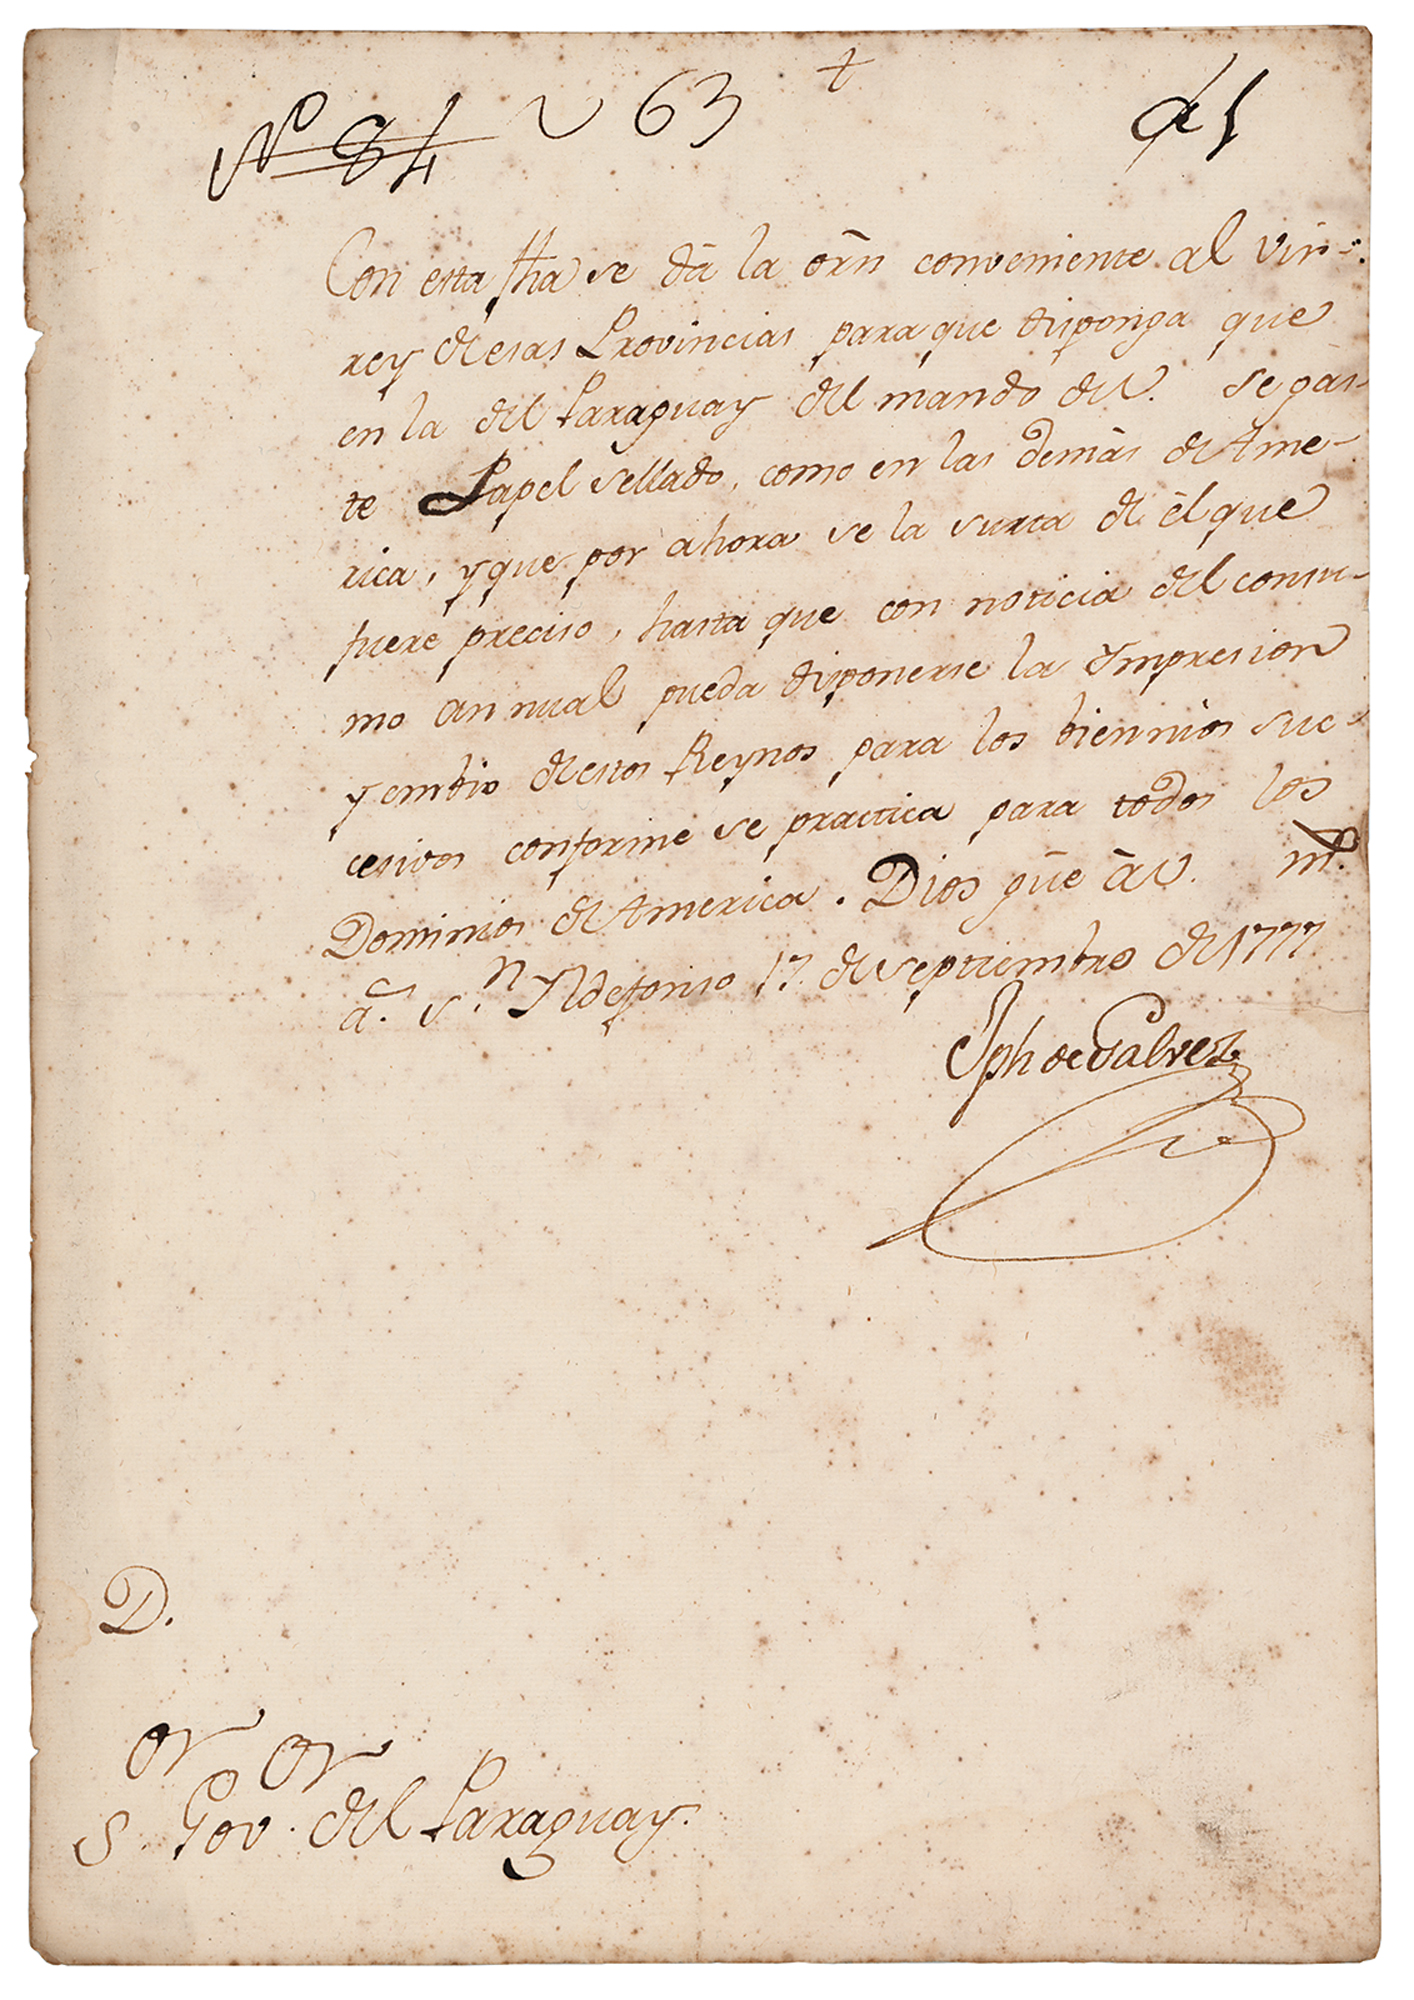 ✝
Nº 84 63
Con esta fha se dà la orñ conveniente al Vir-
rey de esas Provincias para que disponga que
en la del Paraguay del mando de V. se gas-
te Papel sellado, como en las demàs de Ame-
rica, y que por ahora se la surta de èl que
fuere preciso, hasta que con noticia del consu-
mo annual pueda disponerse la Ympresion
y embio de estos Reynos para los biennios suc-
cesivos conforme se practica para todos los
Dominios de America. Dios güe à V. m.s
a.s S.n Yldefonso 17. de septiembre de 1777
Jph de Galvez
D.
S.or Gov.or del Paraguay.